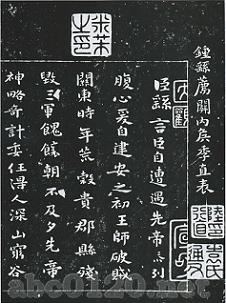 鍾繇薦關內矦季直表
臣繇言臣自遭遇先帝忝列
腹心爰自建安之初王師破賊
關東時年荒穀貴郡縣殘
毀三軍餽饟朝不及夕先帝
神略奇計委任得人深山窮谷
米芾之印
大觀
abc0120.net